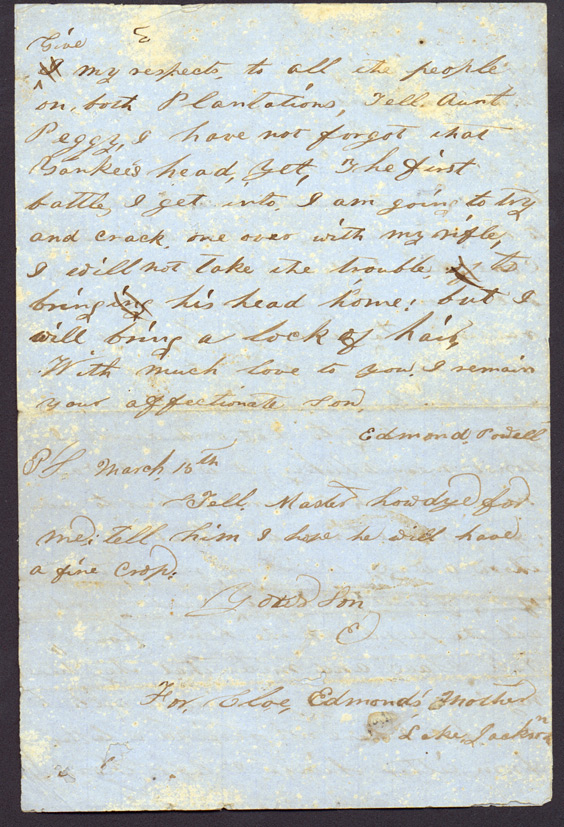 Give
I my respects to all the people
on, both Plantations, Tell. Aunt
Peggy, I have not forgot that
Yankees head, Yet, The first
battle, I get into, I am going to try
and crack, one over with my rifle,
I will not take the trouble, of to
bringing his head home; but I
will bring a lock of hair,
With much love to you, I remain
your affectionate Son,
Edmond, Powell
PS. March, 15th
Tell. Master howdye for
me, tell him I hope he will have
a fine crop.
Your Son
E
For, Cloe, Edmond's Mother
Lake, Jackson